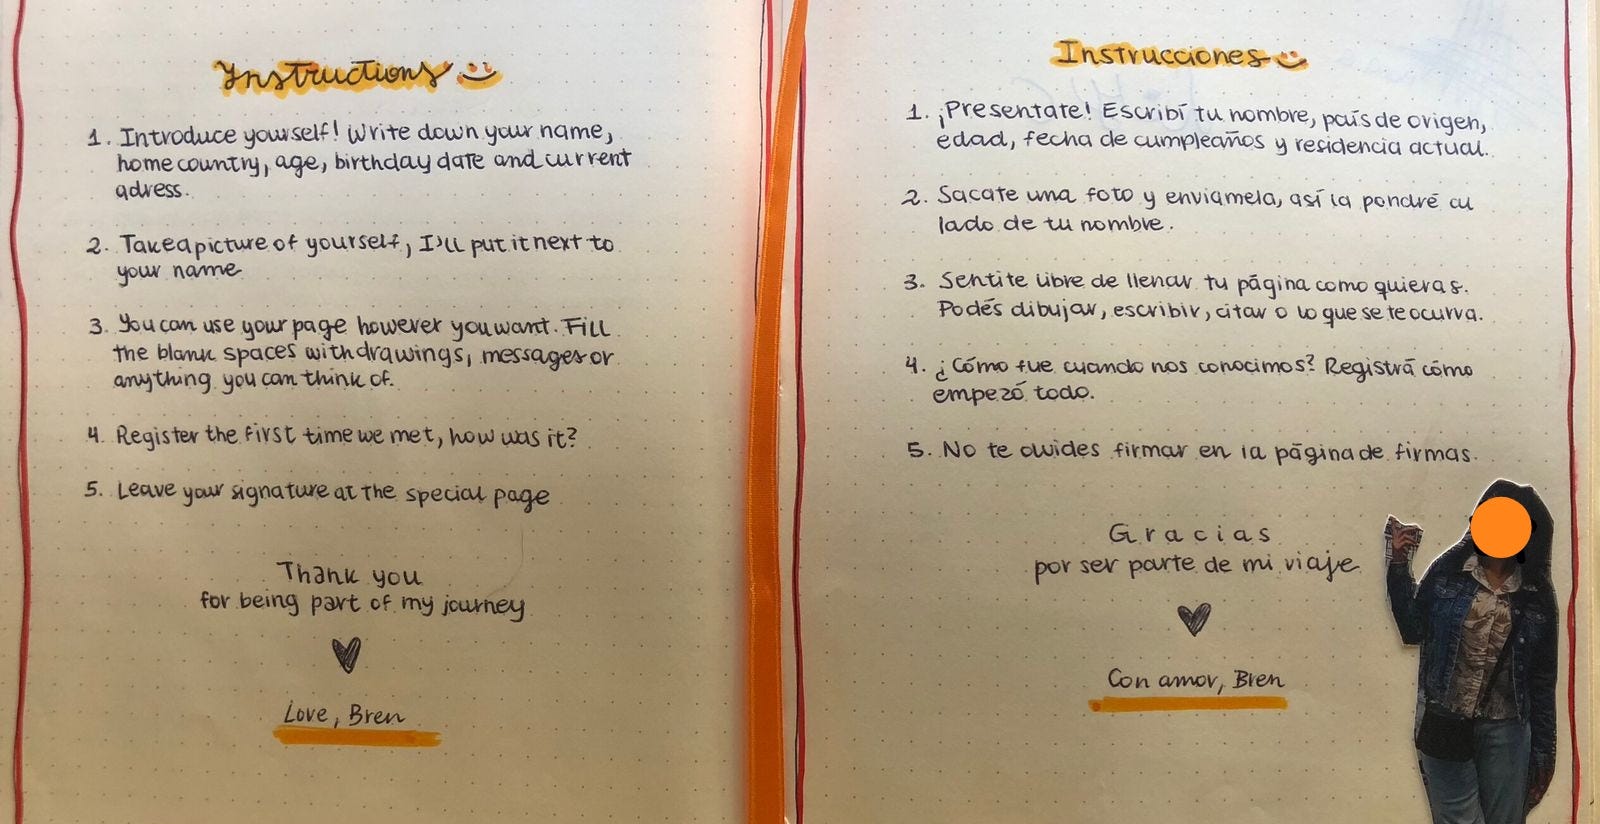 Instructions
1. Introduce yourself! Write down your name,
home country, age, birthday date and current
adress.
2. Take a picture of yourself, I'll put it next to
your name
3. You can use your page however you want. Fill
the blank spaces with drawings, messages or
anything you can think of.
4. Register the first time we met, how was it?
5. Leave your signature at the special page
Thank you
for being part of my journey
Love, Bren
Instrucciones
1. ¡Presentate! Escribí tu nombre, país de origen,
edad, fecha de cumpleaños y residencia actual.
2. Sacate una foto y enviamela, así la pondré al
lado de tu nombre.
3. Sentite libre de llenar tu página como quieras.
Podés dibujar, escribir, citar o lo que se te ocurra.
4. ¿Cómo fue cuando nos conocimos? Registrá cómo
empezó todo.
5. No te olvides firmar en la página de firmas.
Gracias
por ser parte de mi viaje
Con amor, Bren